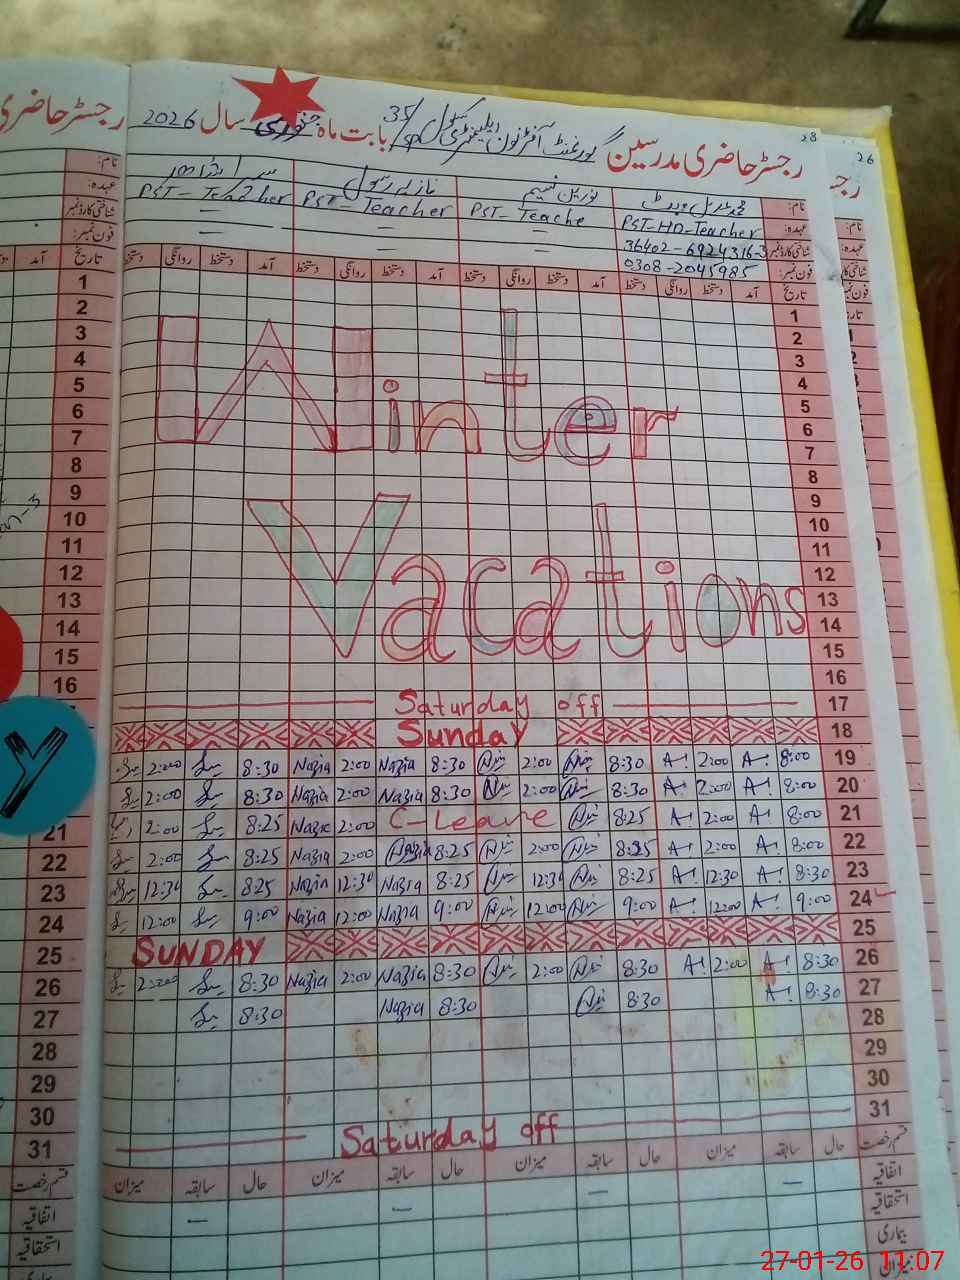 رجسٹر حاضری
28
26
رجسٹر حاضری مدرسین گورنمنٹ آفٹرنون ایلیمنٹری سکول 35/SP بابت ماہ جنوری سال 2026
نام:
عہدہ: PST-HD-Teacher PST-Teache PST-Teacher PST-Teacher
شناختی کارڈ نمبر 36402-6924316-3
فون نمبر: 0308-2045985
تاریخ آمد دستخط روانگی دستخط آمد دستخط روانگی دستخط آمد دستخط روانگی دستخط آمد دستخط روانگی دستخط
1
2
3
4
5
6
7
8
9
10
11
12
13
14
15
16
Winter
Vacations
17 Saturday off
18 Sunday
19 2:00 8:30 Nazia 2:00 Nazia 8:30 2:00 8:30 A! 2:00 A! 8:00
20 2:00 8:30 Nazia 2:00 Nazia 8:30 2:00 8:30 A! 2:00 A! 8:00
21 2:00 8:25 Nazia 2:00 C-Leave 8:25 A! 2:00 A! 8:00
22 2:00 8:25 Nazia 2:00 Nazia 8:25 2:00 8:25 A! 2:00 A! 8:00
23 12:30 8:25 Nazia 12:30 Nazia 8:25 12:30 8:25 A! 12:30 A! 8:30
24 12:00 9:00 Nazia 12:00 Nazia 9:00 12:00 9:00 A! 12:00 A! 9:00
25 SUNDAY
26 2:00 8:30 Nazia 2:00 Nazia 8:30 2:00 8:30 A! 2:00 A! 8:30
27 8:30 Nazia 8:30 8:30 A! 8:30
28
29
30
31 Saturday off
قسم رخصت حال سابقہ میزان حال سابقہ میزان حال سابقہ میزان حال سابقہ میزان
اتفاقیہ
استحقاقیہ
بیماری
میزان
Y
27-01-26 11:07